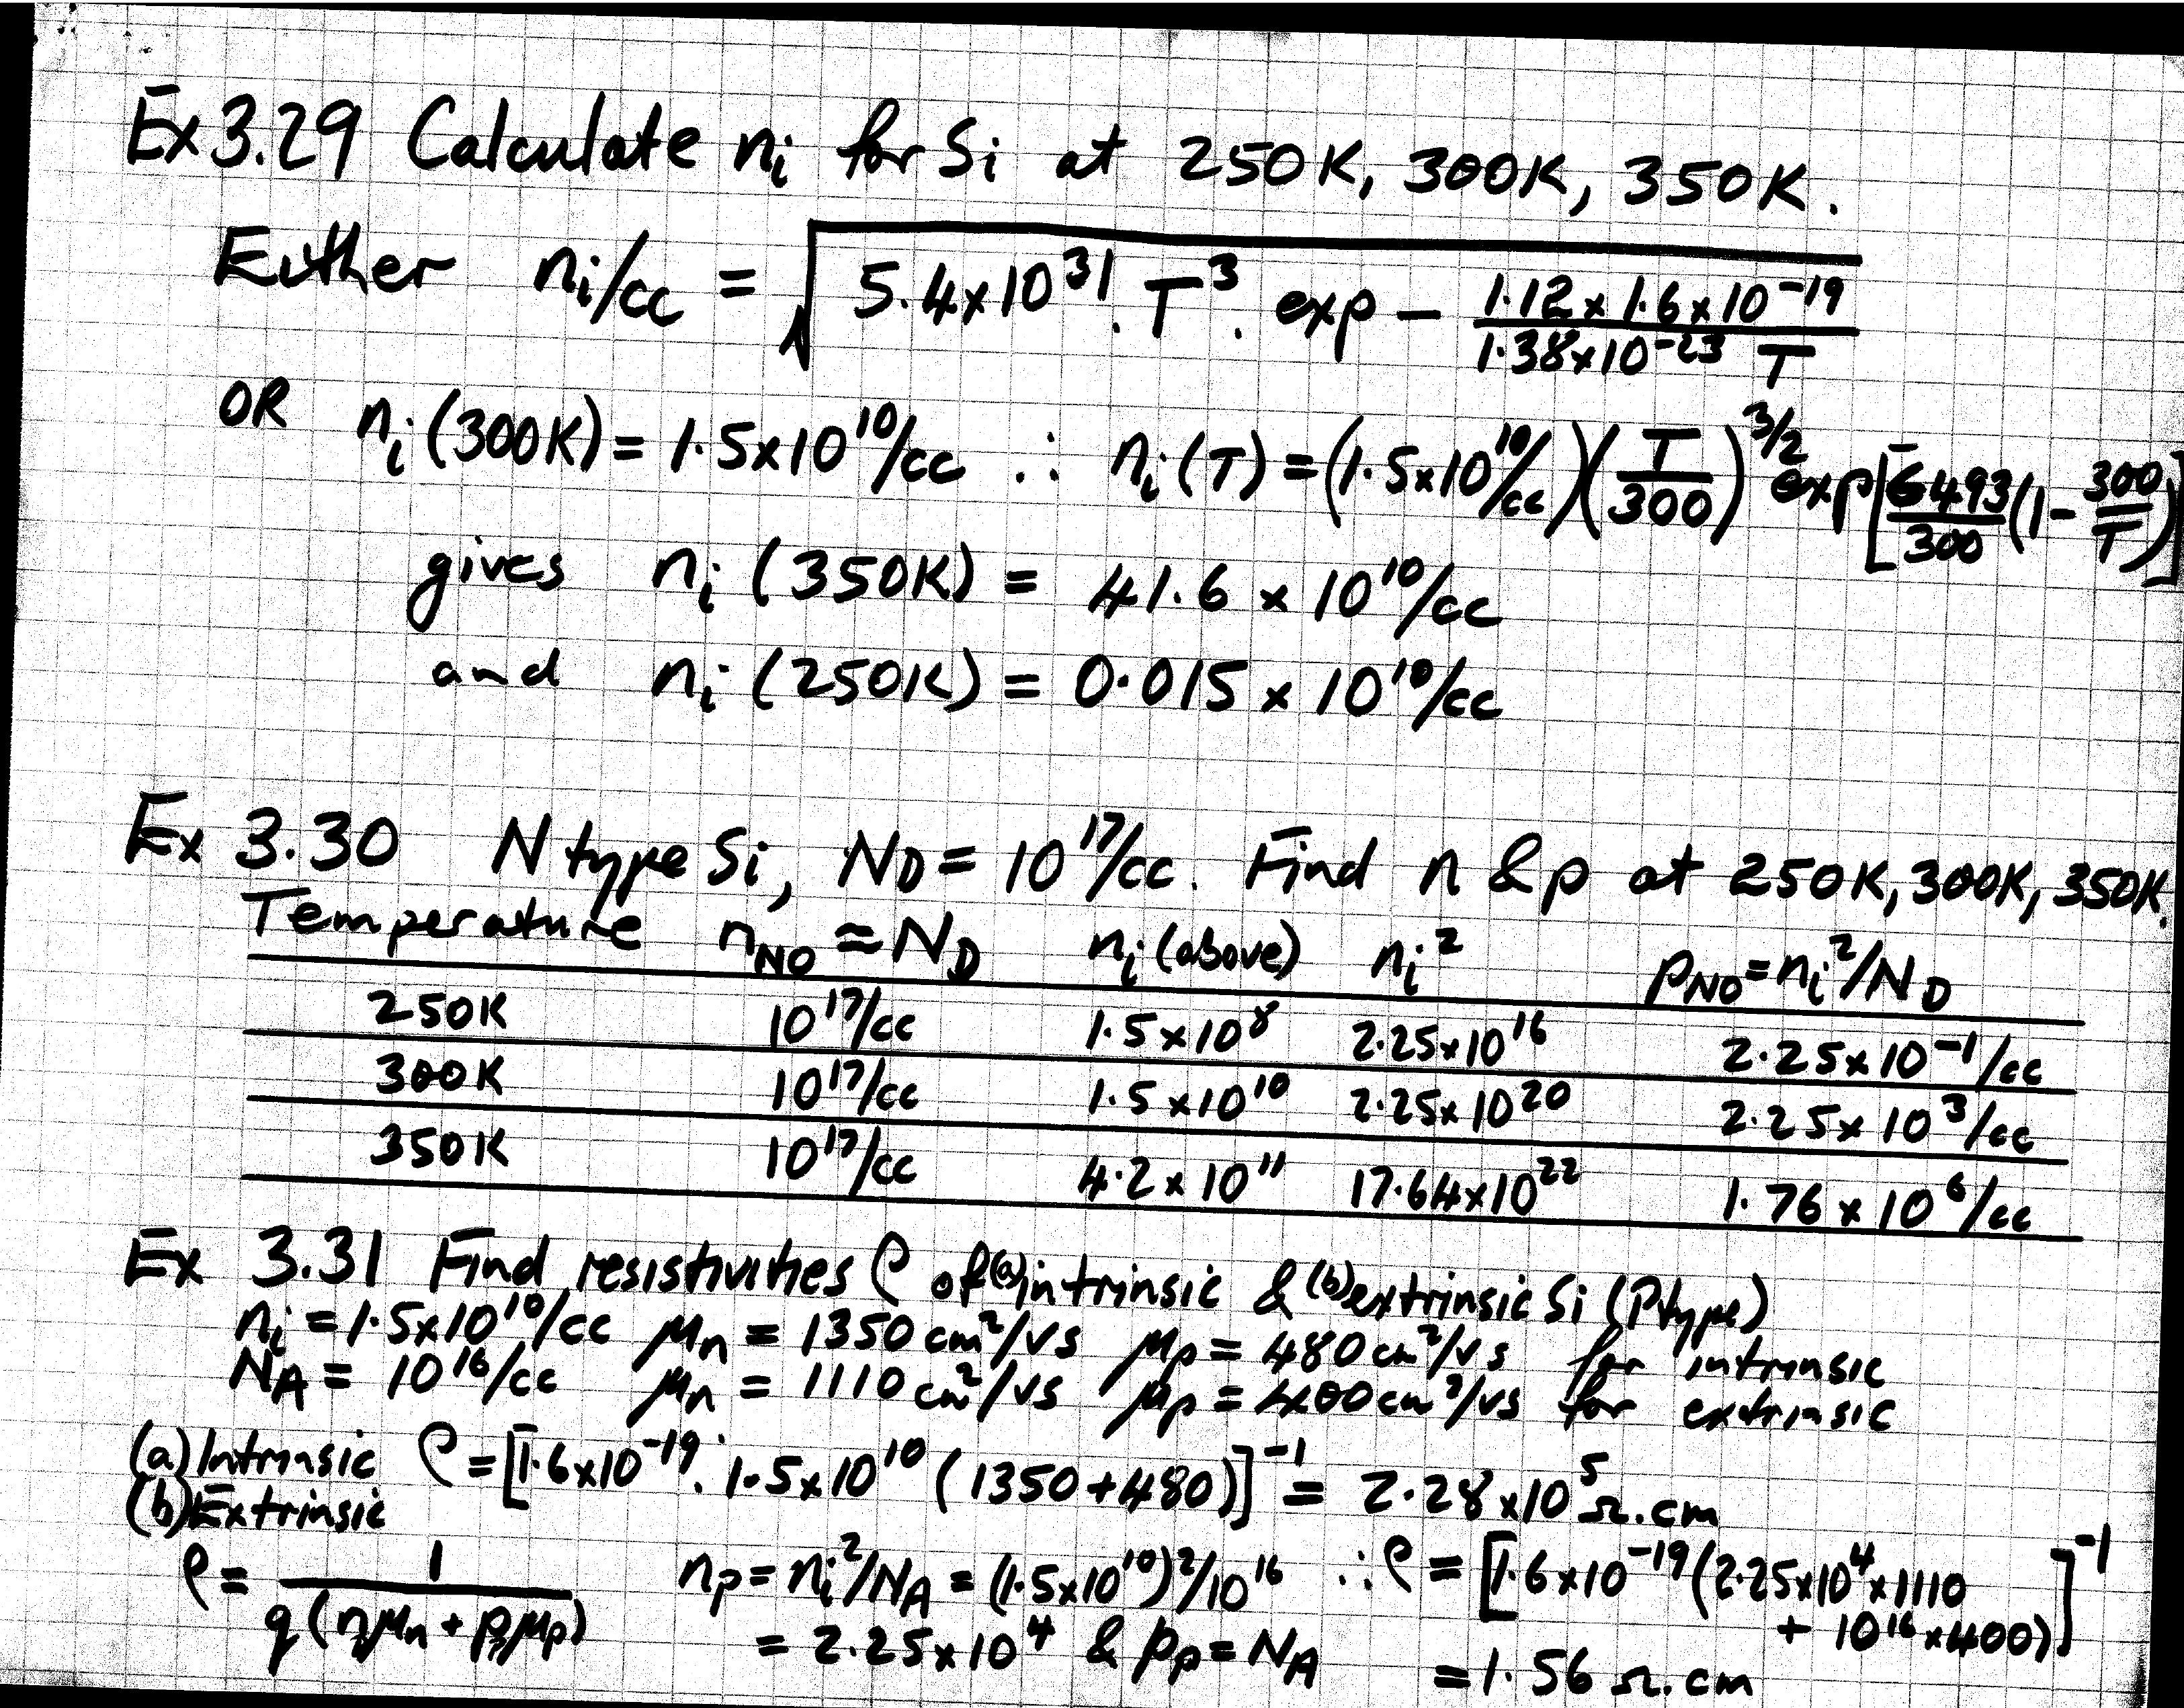 Ex 3.29 Calculate nᵢ for Si at 250K, 300K, 350K.
Either nᵢ/cc = √(5.4×10³¹ . T³ . exp − (1.12 × 1.6 × 10⁻¹⁹)/(1.38×10⁻²³ T))
OR nᵢ(300K) = 1.5×10¹⁰/cc ∴ nᵢ(T) = (1.5×10¹⁰/cc)(T/300)^(3/2) exp[6493/300 (1 − 300/T)]
gives nᵢ (350K) = 41.6 × 10¹⁰/cc
and nᵢ (250K) = 0.015 × 10¹⁰/cc
Ex 3.30 N type Si, N_D = 10¹⁷/cc. Find n & p at 250K, 300K, 350K.
Temperature n_NO ≈ N_D nᵢ (above) nᵢ² p_NO = nᵢ²/N_D
250K 10¹⁷/cc 1.5×10⁸ 2.25×10¹⁶ 2.25×10⁻¹/cc
300K 10¹⁷/cc 1.5×10¹⁰ 2.25×10²⁰ 2.25×10³/cc
350K 10¹⁷/cc 4.2×10¹¹ 17.64×10²² 1.76×10⁶/cc
Ex 3.31 Find resistivities ρ of (a) intrinsic & (b) extrinsic Si (P type)
nᵢ = 1.5×10¹⁰/cc μn = 1350 cm²/Vs μp = 480 cm²/Vs for intrinsic
N_A = 10¹⁶/cc μn = 1110 cm²/Vs μp = 400 cm²/Vs for extrinsic
(a) Intrinsic ρ = [1.6×10⁻¹⁹ . 1.5×10¹⁰ (1350+480)]⁻¹ = 2.28×10⁵ Ω.cm
(b) Extrinsic
ρ = 1/(q(nμn + pμp)) np = nᵢ²/N_A = (1.5×10¹⁰)²/10¹⁶ ∴ ρ = [1.6×10⁻¹⁹(2.25×10⁴×1110 + 10¹⁶×400)]⁻¹
= 2.25×10⁴ & pp = N_A = 1.56 Ω.cm